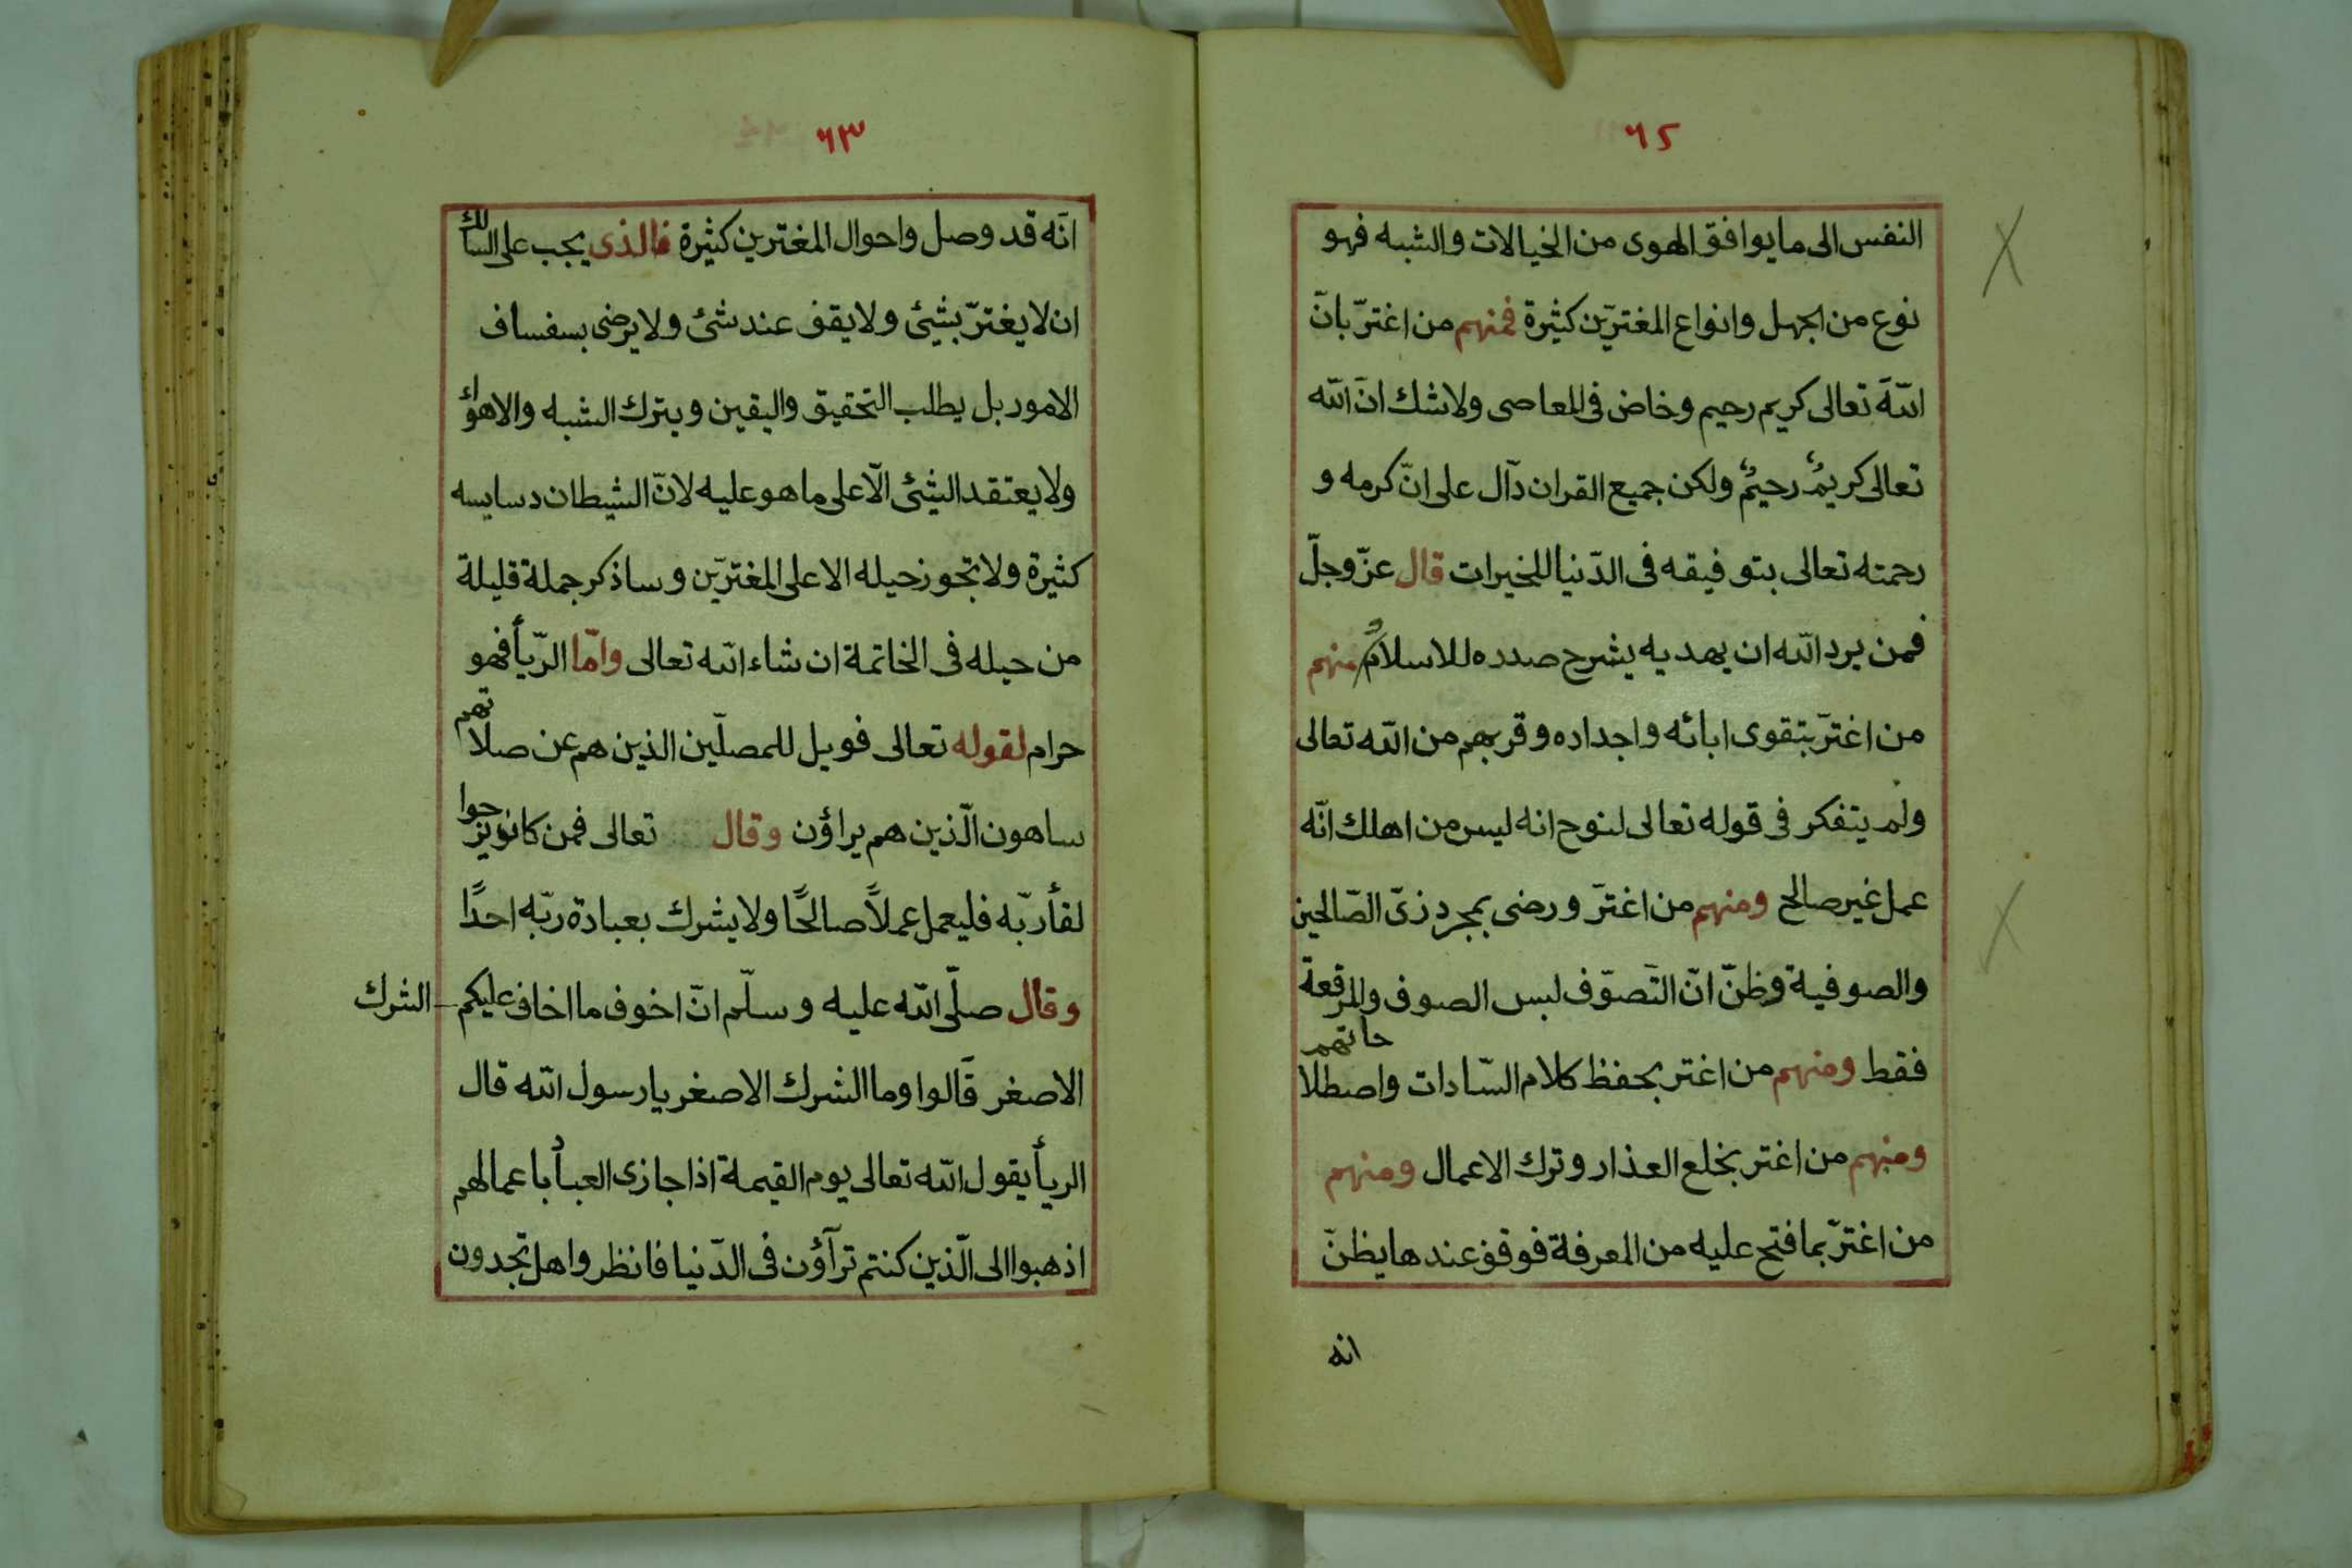 ٦٢
النفس الى ما يوافق الهوى من الخيالات والشبه فهو
نوع من الجهل وانواع المغترّين كثيرة فمنهم من اغترّ بانّ
اللّهَ تعالى كريم رحيم وخاض فى المعاصى ولا شك انّ اللّه
تعالى كريمٌ رحيمٌ ولكن جميع القران دآل على انّ كرمه و
رحمته تعالى بتوفيقه فى الدّنيا للخيرات قال عزّ وجلّ
فمن يرد اللّه ان يهديه يشرح صدره للاسلام ومنهم
من اغترّ بتقوى ابائه واجداده وقربهم من اللّه تعالى
ولم يتفكر فى قوله تعالى لنوح انه ليس من اهلك انّه
عمل غير صالح ومنهم من اغترّ ورضى بمجرد زىّ الصّالحين
والصوفية وظنّ انّ التّصوّف لبس الصوف والمرقعة
فقط ومنهم من اغتر بحفظ كلام السّادات واصطلاحاتهم
ومنهم من اغتر بخلع العذار وترك الاعمال ومنهم
من اغترّ بما فتح عليه من المعرفة فوقف عندها يظنّ
انه
٦٣
انّه قد وصل واحوال المغترين كثيرة فالذى يجب على السالك
ان لا يغترّ بشئ ولا يقف عند شئ ولا يرضى بسفساف
الامور بل يطلب التحقيق واليقين ويترك الشبه والاهوائ
ولا يعتقد الشئ الّا على ما هو عليه لانّ الشيطان دسايسه
كثيرة ولا تجوز حيله الا على المغترّين وساذكر جملة قليلة
من حيله فى الخاتمة ان شاء اللّه تعالى وامّا الرّيأ فهو
حرام لقوله تعالى فويل للمصلّين الذين هم عن صلاتهم
ساهون الّذين هم يراؤن وقال تعالى فمن كان يرجوا
لقأ ربّه فليعمل عملاً صالحًا ولا يشرك بعبادة ربّه احدًا
وقال صلّى اللّه عليه وسلّم انّ اخوف ما اخاف عليكم الشرك
الاصغر قالوا وما الشرك الاصغر يا رسول اللّه قال
الريأ يقول اللّه تعالى يوم القيمة اذا جازى العباد باعمالهم
اذهبوا الى الّذين كنتم ترآؤن فى الدّنيا فانظروا هل تجدون